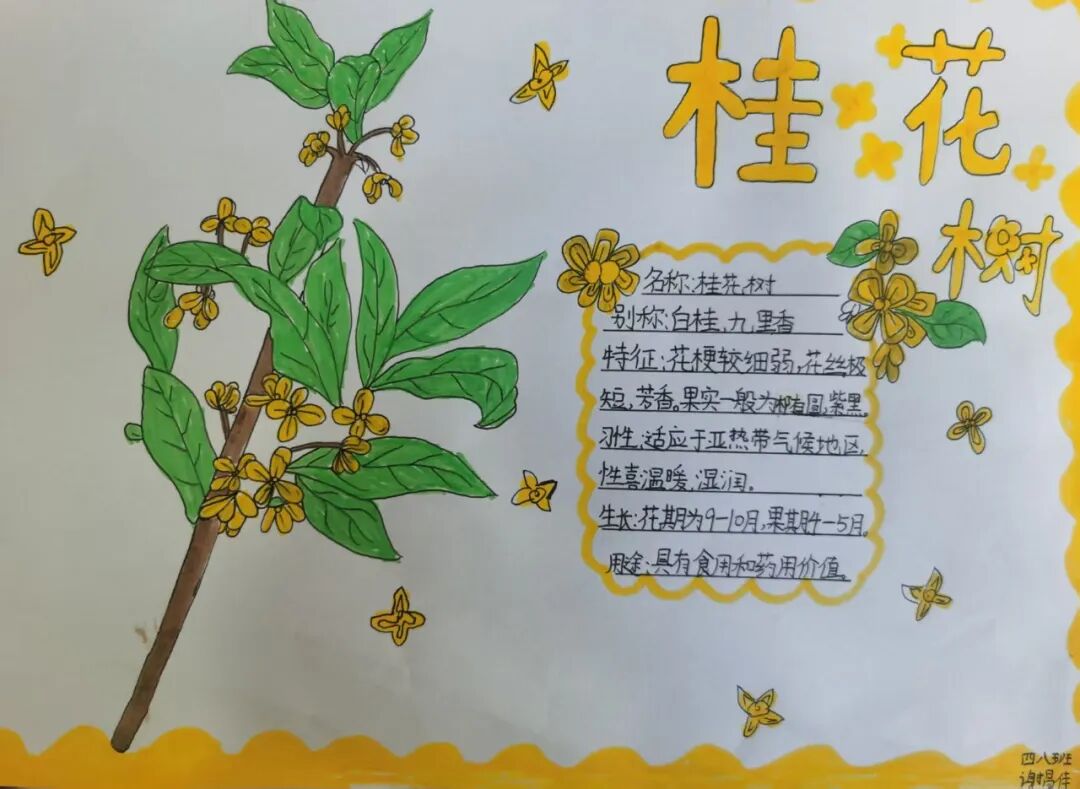 桂花
树
名称:桂花树
别称:白桂,九里香
特征:花梗较细弱,花丝极
短,芳香。果实一般为椭圆,紫黑。
习性:适应于亚热带气候地区,
性喜温暖,湿润。
生长:花期为9-10月,果期4-5月。
用途:具有食用和药用价值。
四八班
谢